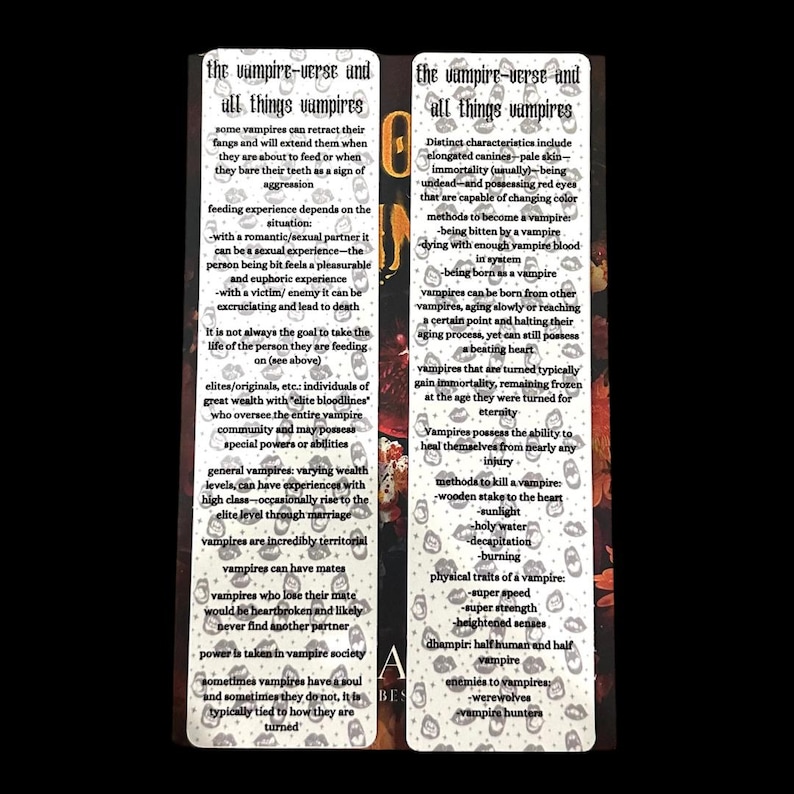 the vampire-verse and
all things vampires
some vampires can retract their
fangs and will extend them when
they are about to feed or when
they bare their teeth as a sign of
aggression
feeding experience depends on the
situation:
-with a romantic/sexual partner it
can be a sexual experience—the
person being bit feels a pleasurable
and euphoric experience
-with a victim/ enemy it can be
excruciating and lead to death
it is not always the goal to take the
life of the person they are feeding
on (see above)
elites/originals, etc.: individuals of
great wealth with "elite bloodlines"
who oversee the entire vampire
community and may possess
special powers or abilities
general vampires: varying wealth
levels, can have experiences with
high class—occasionally rise to the
elite level through marriage
vampires are incredibly territorial
vampires can have mates
vampires who lose their mate
would be heartbroken and likely
never find another partner
power is taken in vampire society
sometimes vampires have a soul
and sometimes they do not, it is
typically tied to how they are
turned
the vampire-verse and
all things vampires
Distinct characteristics include
elongated canines—pale skin—
immortality (usually)—being
undead—and possessing red eyes
that are capable of changing color
methods to become a vampire:
-being bitten by a vampire
-dying with enough vampire blood
in system
-being born as a vampire
vampires can be born from other
vampires, aging slowly or reaching
a certain point and halting their
aging process, yet can still possess
a beating heart
vampires that are turned typically
gain immortality, remaining frozen
at the age they were turned for
eternity
Vampires possess the ability to
heal themselves from nearly any
injury
methods to kill a vampire:
-wooden stake to the heart
-sunlight
-holy water
-decapitation
-burning
physical traits of a vampire:
-super speed
-super strength
-heightened senses
dhampir: half human and half
vampire
enemies to vampires:
-werewolves
-vampire hunters